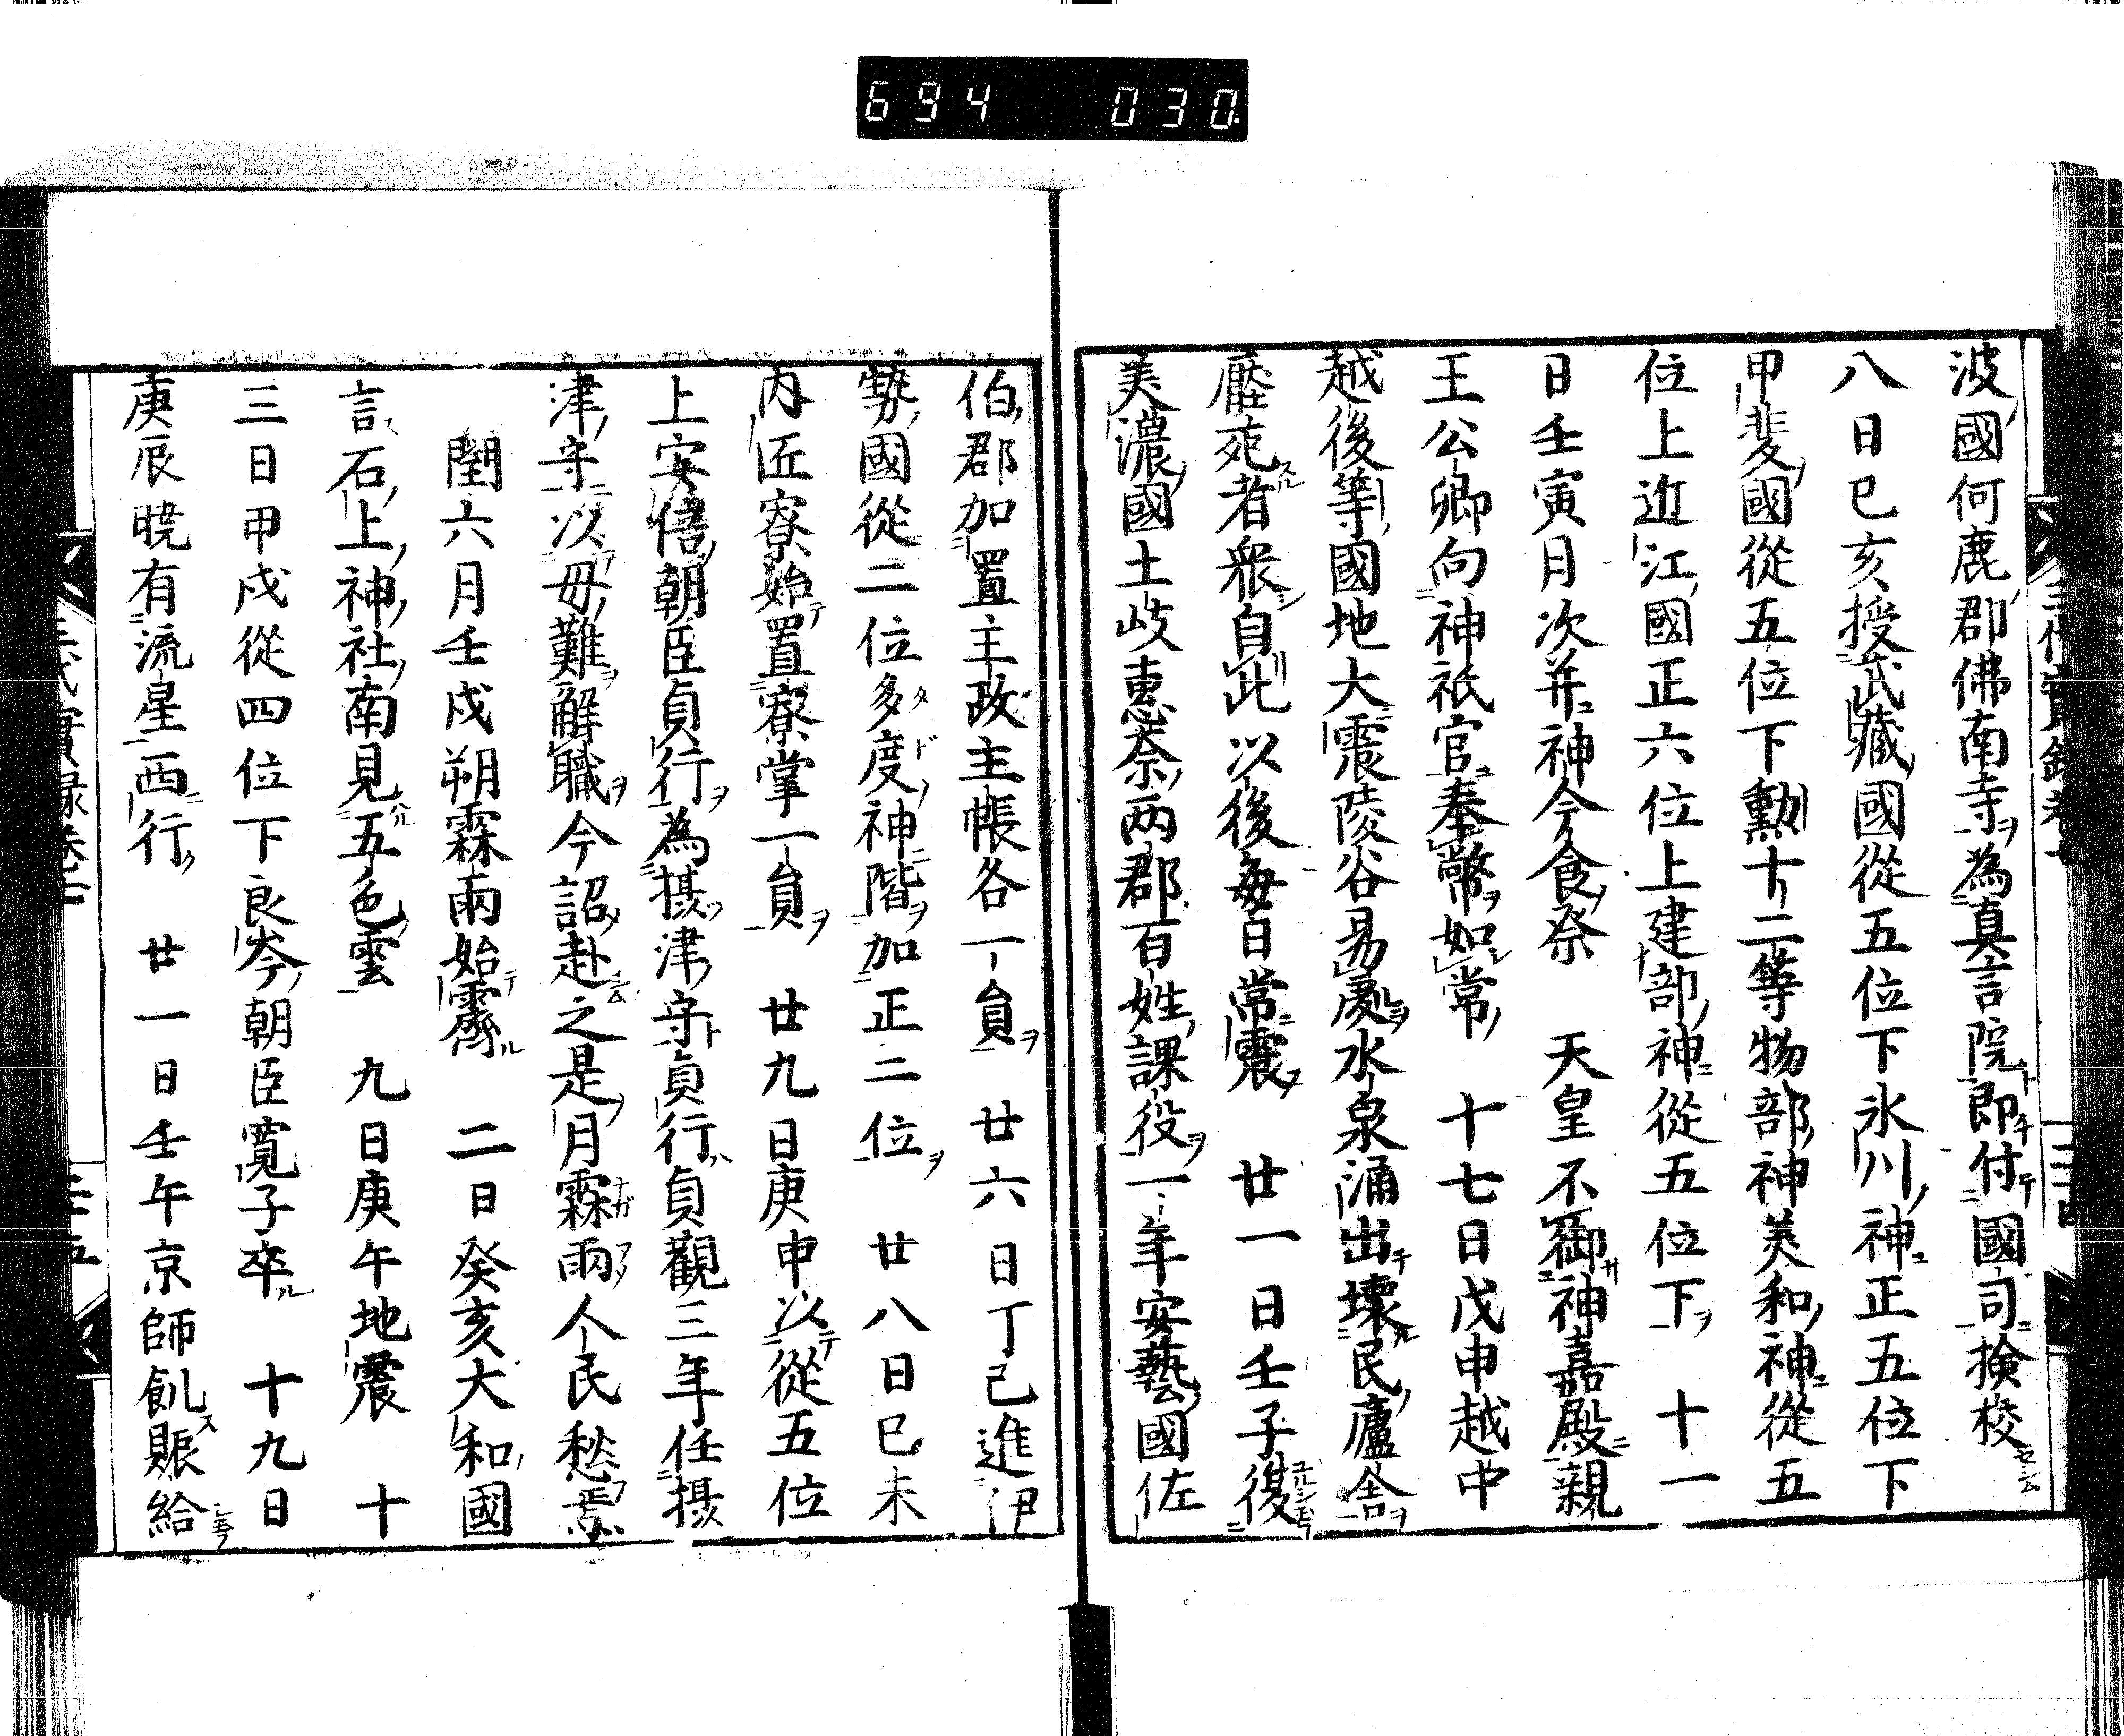 694 030
波國何鹿郡佛南寺為真言院即付國司撿挍
八日巳亥授武藏國從五位下氷川神正五位下
甲斐國從五位下勳十二等物部神美和神從五
位上近江國正六位上建部神從五位下 十一
日壬寅月次并神今食祭 天皇不御神嘉殿親
王公卿向神祇官奉幣如常 十七日戊申越中
越後等國地大震陵谷易處水泉涌出壞民廬舍
壓死者衆自此以後每日常震 廿一日壬子復
美濃國土岐惠奈两郡百姓課役一年安藝國佐
伯郡加置主政主帳各一員 廿六日丁己進伊
勢國從二位多度神階加正二位 廿八日巳未
内匠寮始置寮掌一員 廿九日庚申以從五位
上安倍朝臣貞行為摂津守貞行貞觀三年任摂
津守以母難解職今詔赴之是月霖雨人民愁焉
閏六月壬戌朔霖雨始霽 二日癸亥大和國
言石上神社南見五色雲 九日庚午地震 十
三日甲戌從四位下良岑朝臣寬子卒 十九日
庚辰曉有流星西行 廿一日壬午京師飢賑給